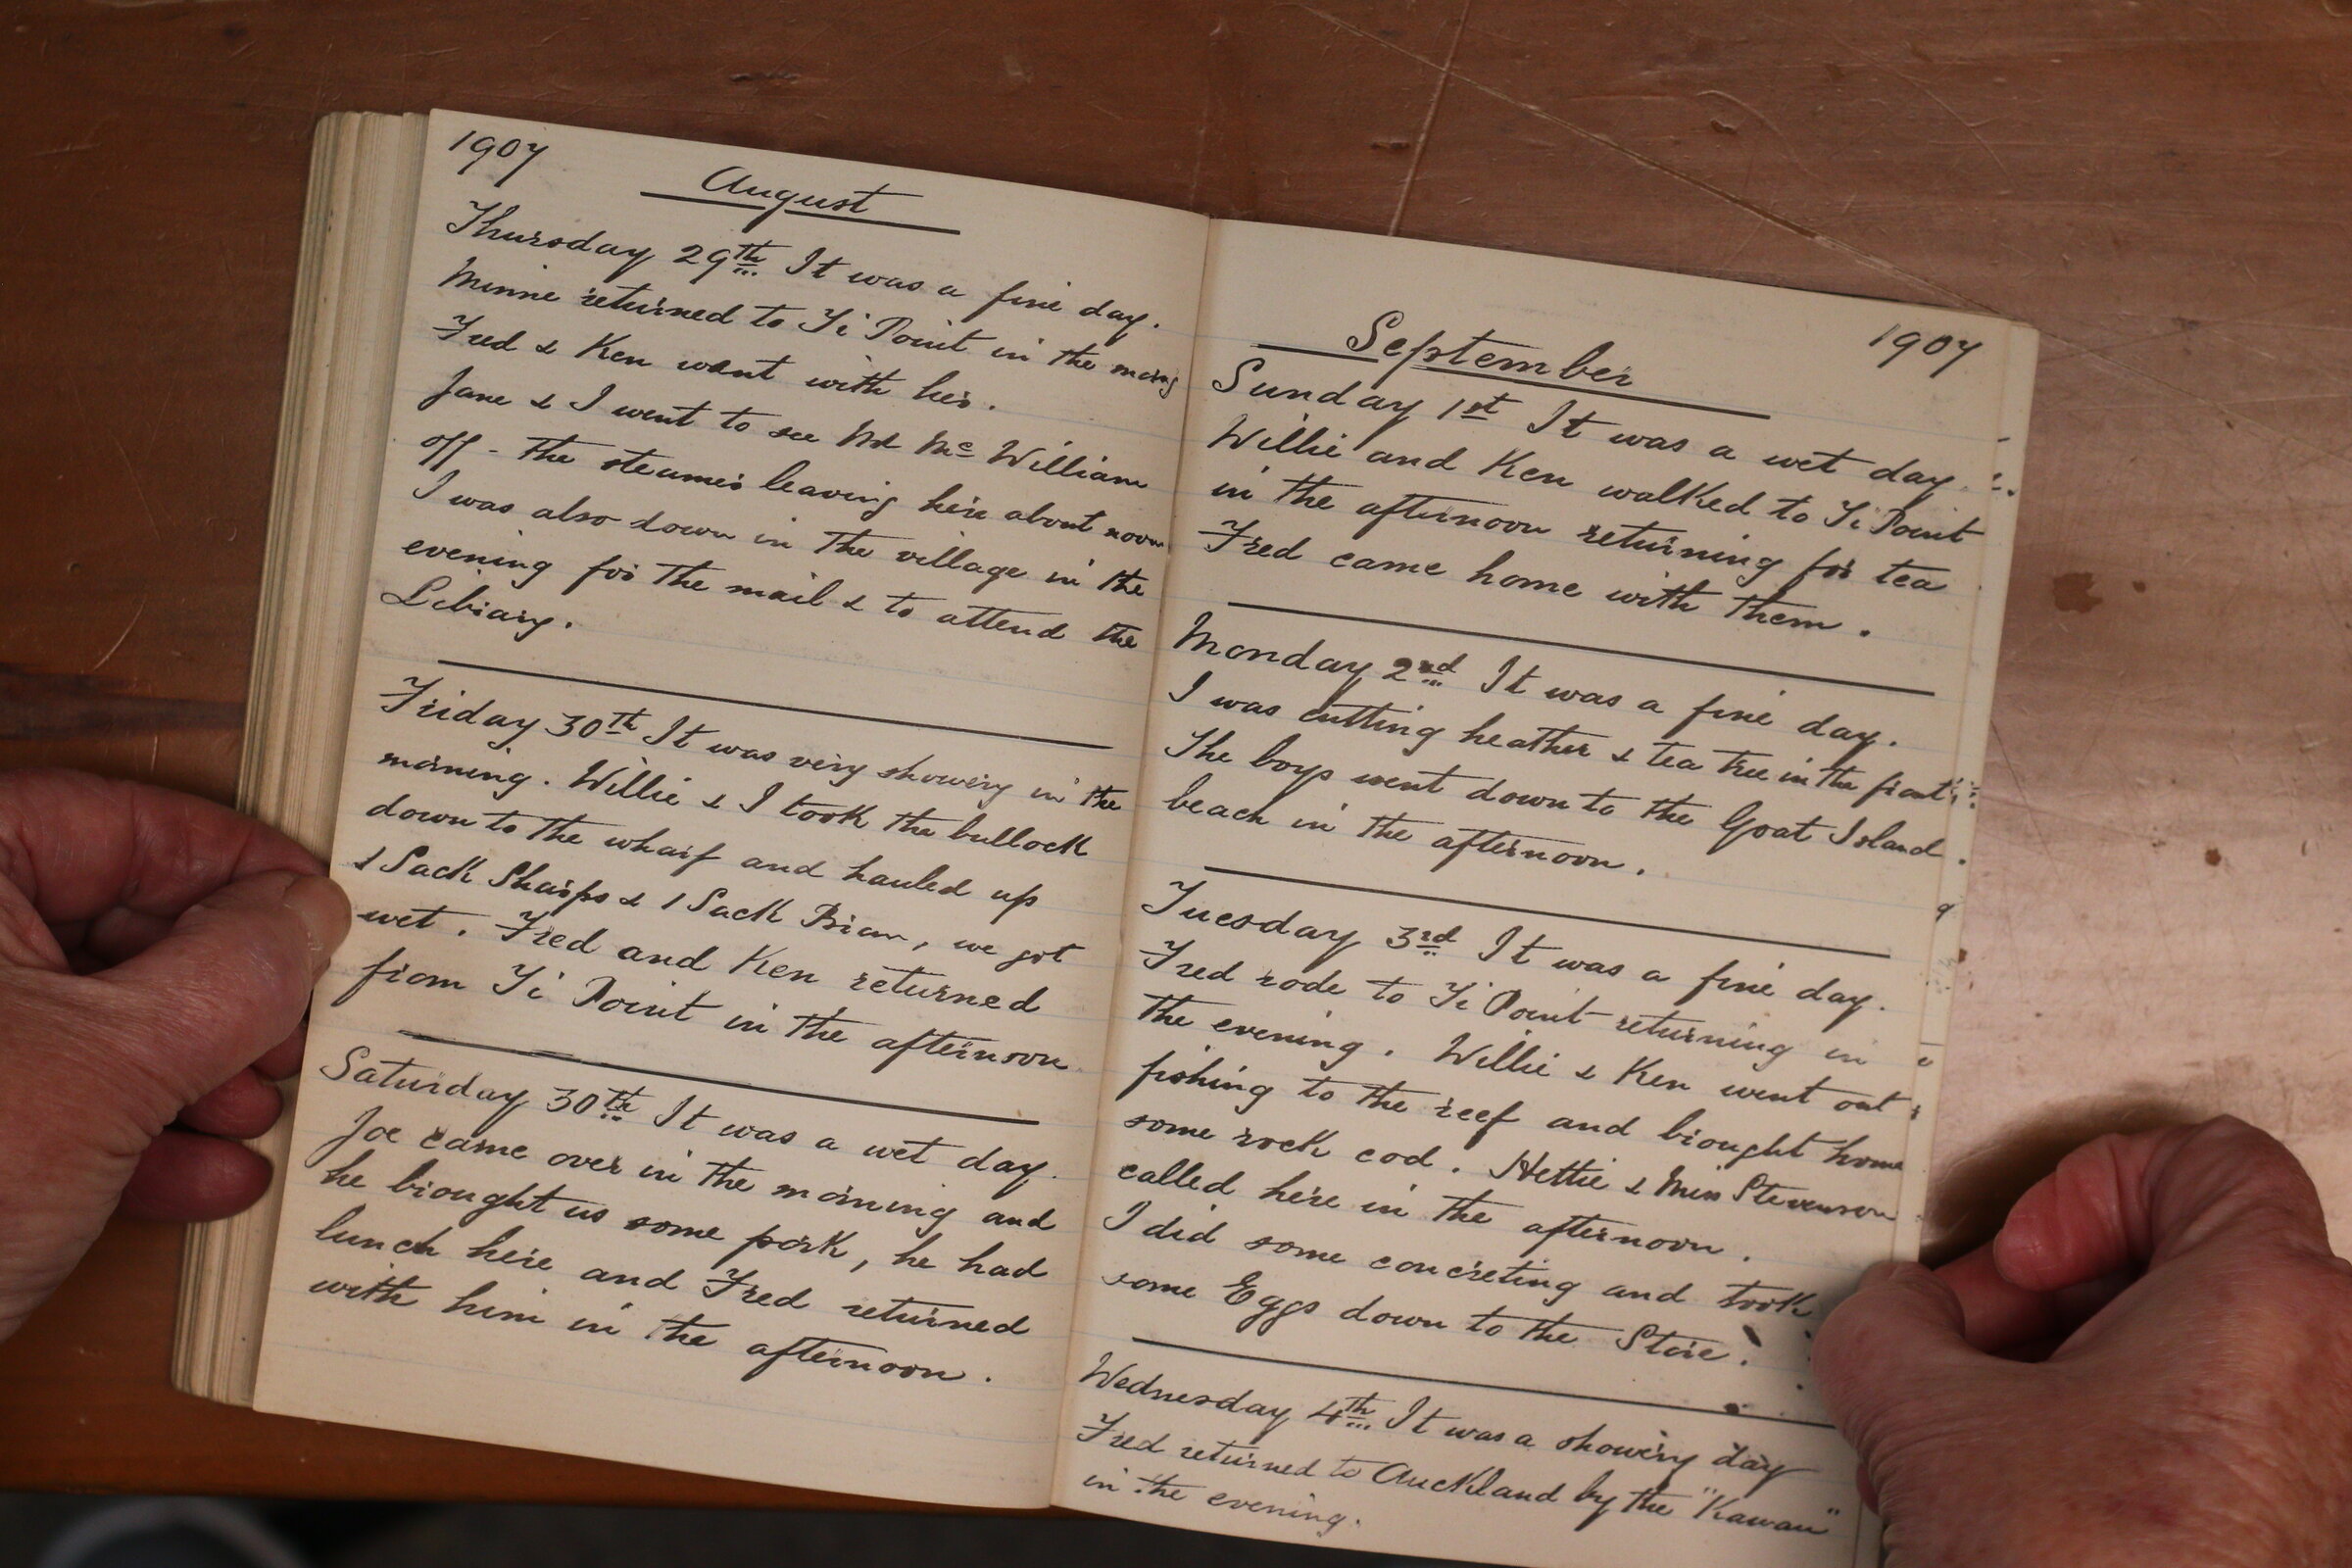 1907
August
Thursday 29th It was a fine day.
Minnie returned to Ti Point in the morng
Fred & Ken want with her.
Jane & I went to see Mr Mc William
off - the steamer leaving here about noon
I was also down in the village in the
evening for the mail & to attend the
Library.
Friday 30th It was very showery in the
morning. Willie & I took the bullock
down to the wharf and hauled up
1 Sack Sharps & 1 Sack Bran, we got
wet. Fred and Ken returned
from Ti Point in the afternoon
Saturday 30th It was a wet day.
Joe came over in the morning and
he brought us some pork, he had
lunch here and Fred returned
with him in the afternoon.
1907
September
Sunday 1st It was a wet day.
Willie and Ken walked to Ti Point
in the afternoon returning for tea
Fred came home with them.
Monday 2nd It was a fine day.
I was cutting heather & tea tree in the front
The boys went down to the Goat Island
beach in the afternoon.
Tuesday 3rd It was a fine day.
Fred rode to Ti Point returning in
the evening. Willie & Ken went out
fishing to the reef and brought home
some rock cod. Hettie & Miss Stevenson
called here in the afternoon.
I did some concreting and took
some Eggs down to the Store.
Wednesday 4th It was a showery day
Fred returned to Auckland by the "Kawau"
in the evening.